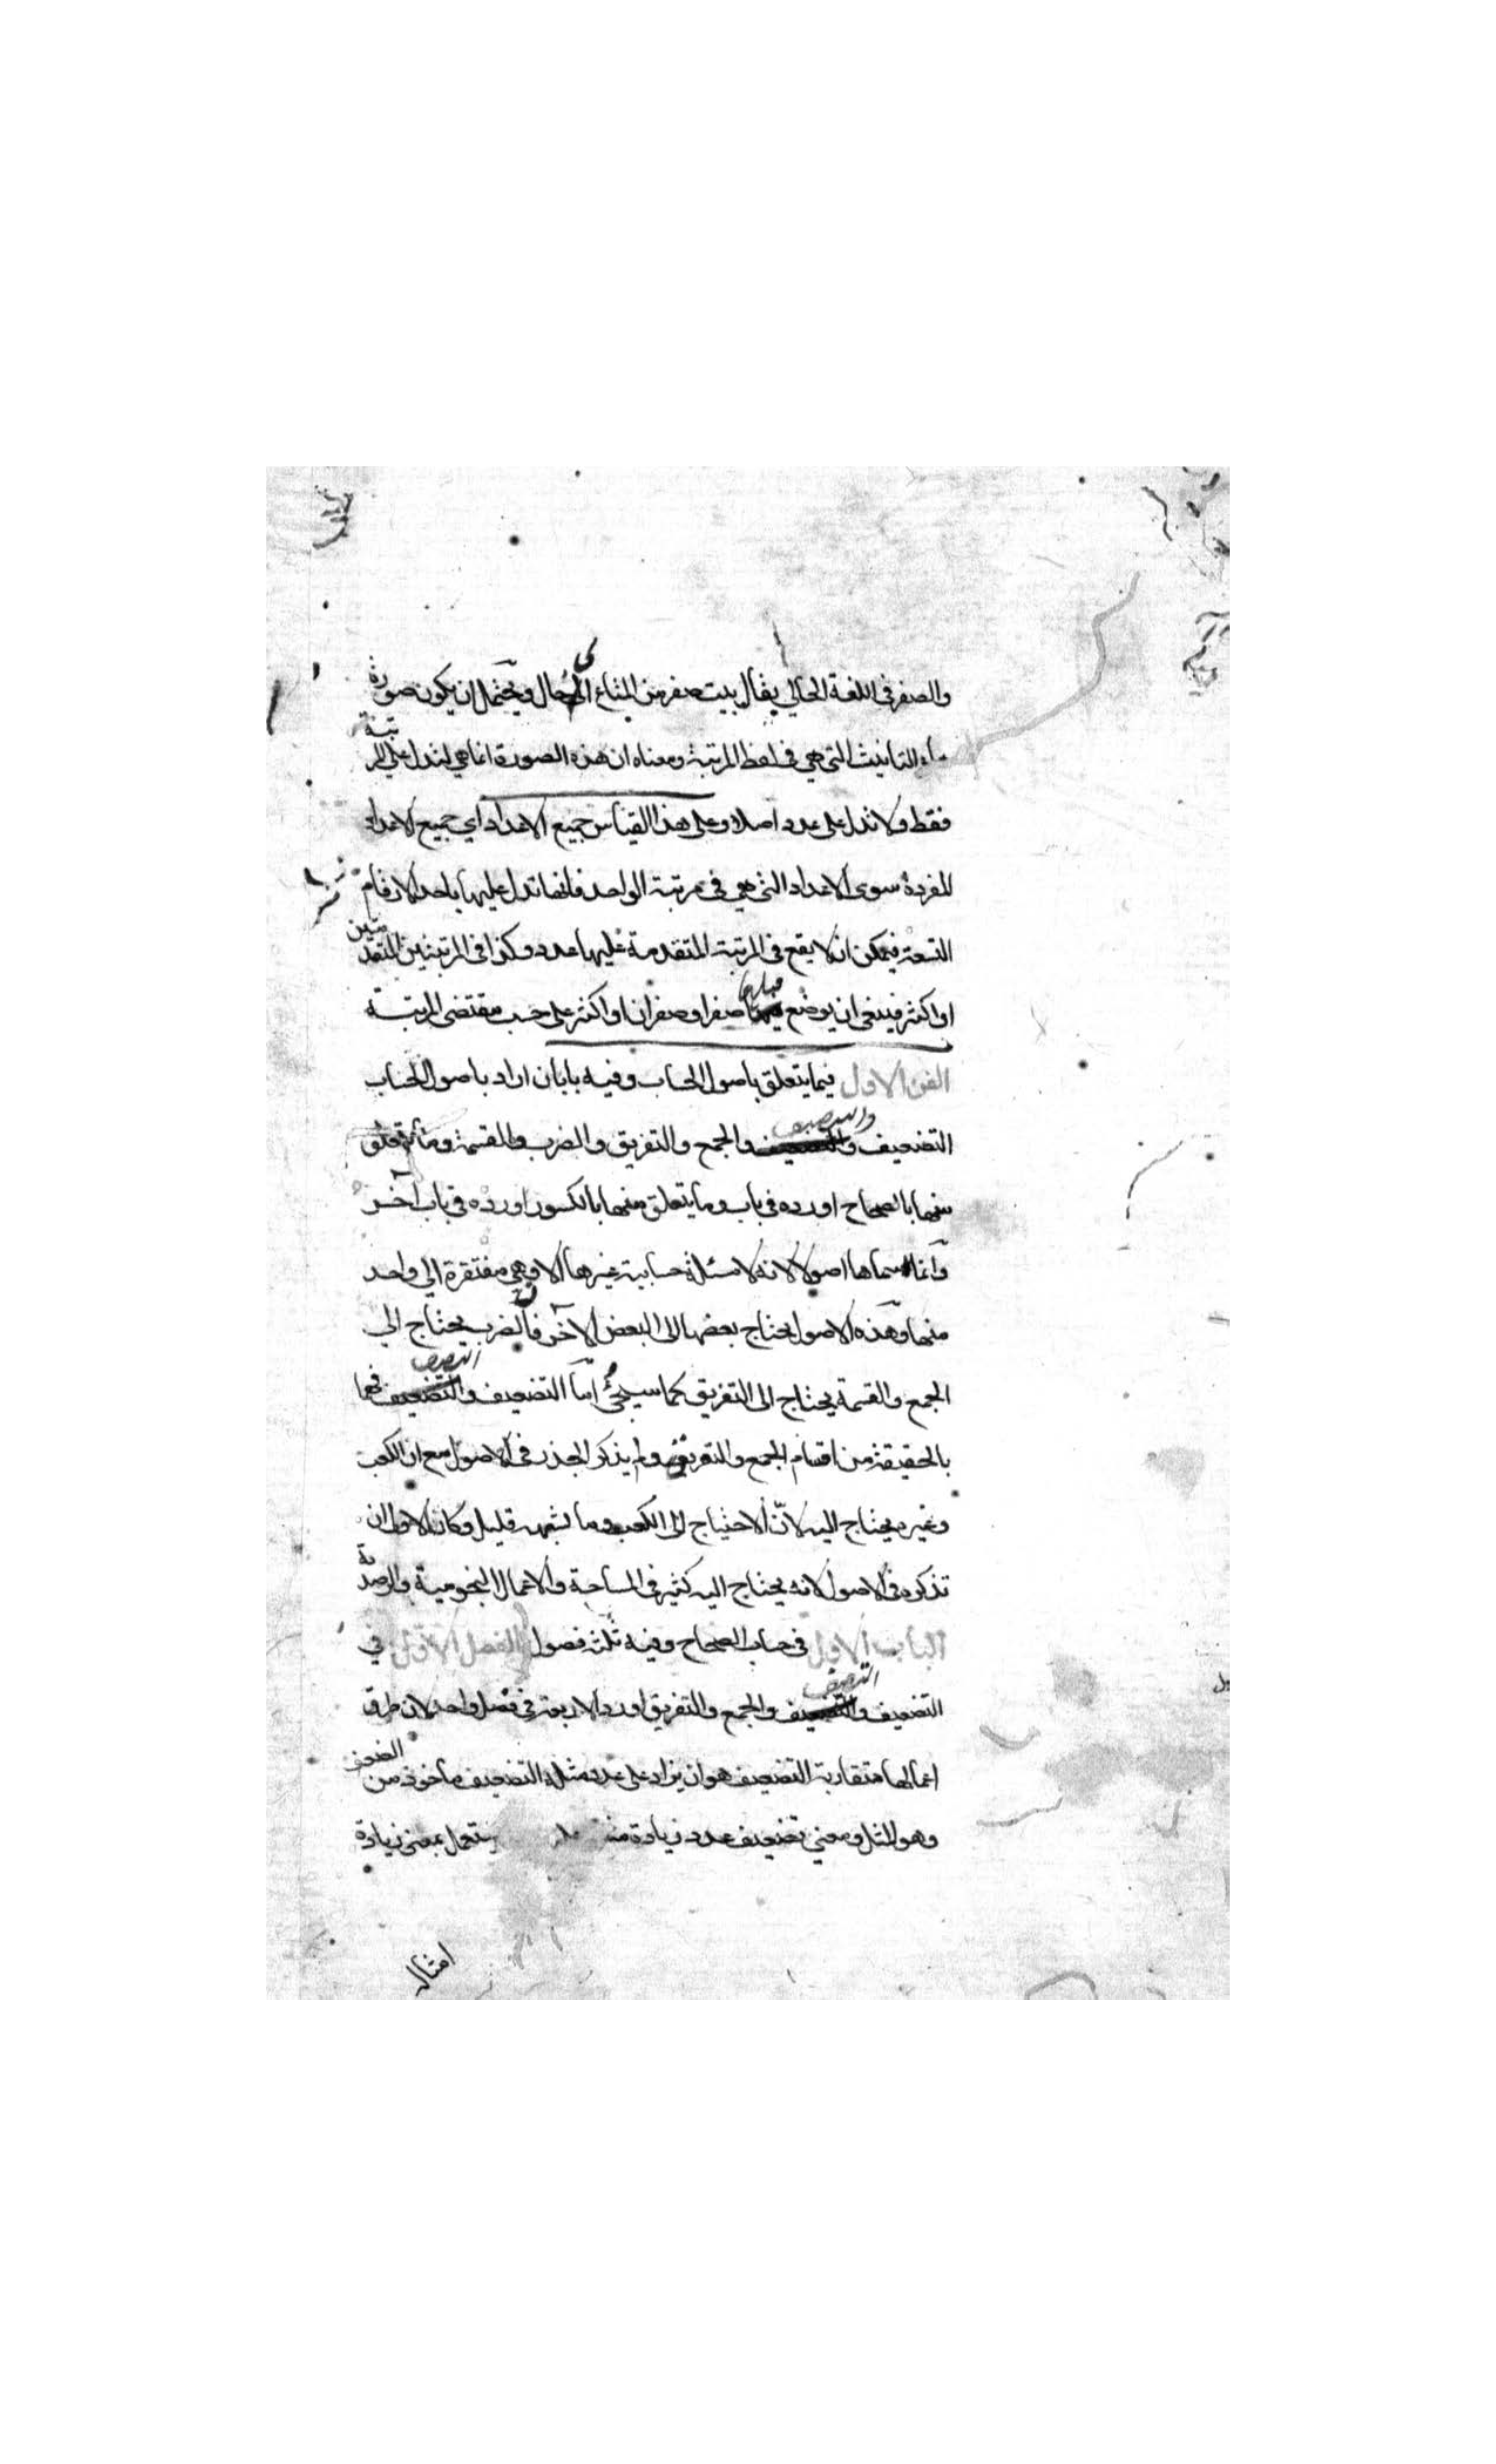 والصفر في اللغة الخالي يقال بيت صفر من المتاع اى خال ويحتمل ان يكون صورة
هاء التانيث التي هي في لفظ المرتبة ومعناه ان هذه الصورة انما هي لتدل علي المرتبة
فقط ولا تدل على عدد اصلا وعلى هذا القياس جميع الاعداد اي جميع الاعداد
المفردة سوى الاعداد التي هي في مرتبة الواحد فانها تدل عليها باحد الارقام
التسعة فيمكن ان لا يقع في المرتبة المتقدمة عليها عدد وكذا في المرتبتين المتقدمتين
او اكثر فينبغي ان يوضع قبلها صفر او صفران او اكثر على حسب مقتضى المرتبة
الفن الاول فيما يتعلق باصول الحساب وفيه بابان اراد باصول الحساب
التضعيف والتنصيف والجمع والتفريق والضرب والقسمة وما يتعلق
منها بالصحاح اورده في باب وما يتعلق منها بالكسور اورده في باب آخر
وانما سماها اصولا لانه لا مسئلة حسابية غيرها الا وهي مفتقرة الي واحد
منها وهذه الاصول يحتاج بعضها الى البعض الآخر فان الضرب يحتاج الي
الجمع والقسمة يحتاج الى التفريق كما سيجئ امّا التضعيف والتنصيف فهما
بالحقيقة من اقسام الجمع والتفريق ولم يذكر الجذر في الاصول مع ان الكعب
وغيره يحتاج اليه لانّ الاحتياج الى الكعب وما يشبهه قليل وكان الاولى ان
تذكره في الاصول لانه يحتاج اليه كثير في المساحة والاعمال النجومية والرصدية
الباب الاول في حساب الصحاح وفيه ثلثة فصول الفصل الاول في
التضعيف والتنصيف والجمع والتفريق اورد الاربعة في فصل واحد لان طرق
اعمالها متقاربة التضعيف هو ان يزاد على عدد مثله التضعيف ماخوذ من الضعف
وهو المثل ومعني تضعيف عدد زيادة يستعمل بمعنى زيادة
امثال